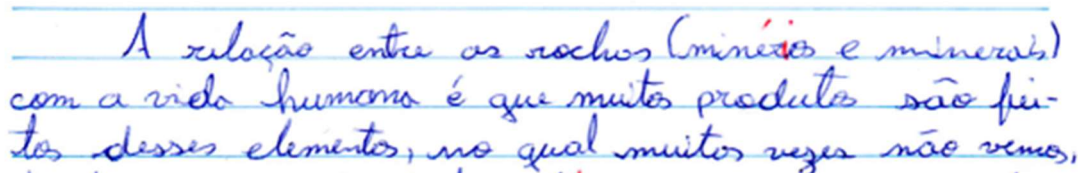 A relação entre as rochas (minérios e minerais)
com a vida humana é que muitos produtos são fei-
tos desses elementos, no qual muitas vezes não vemos,